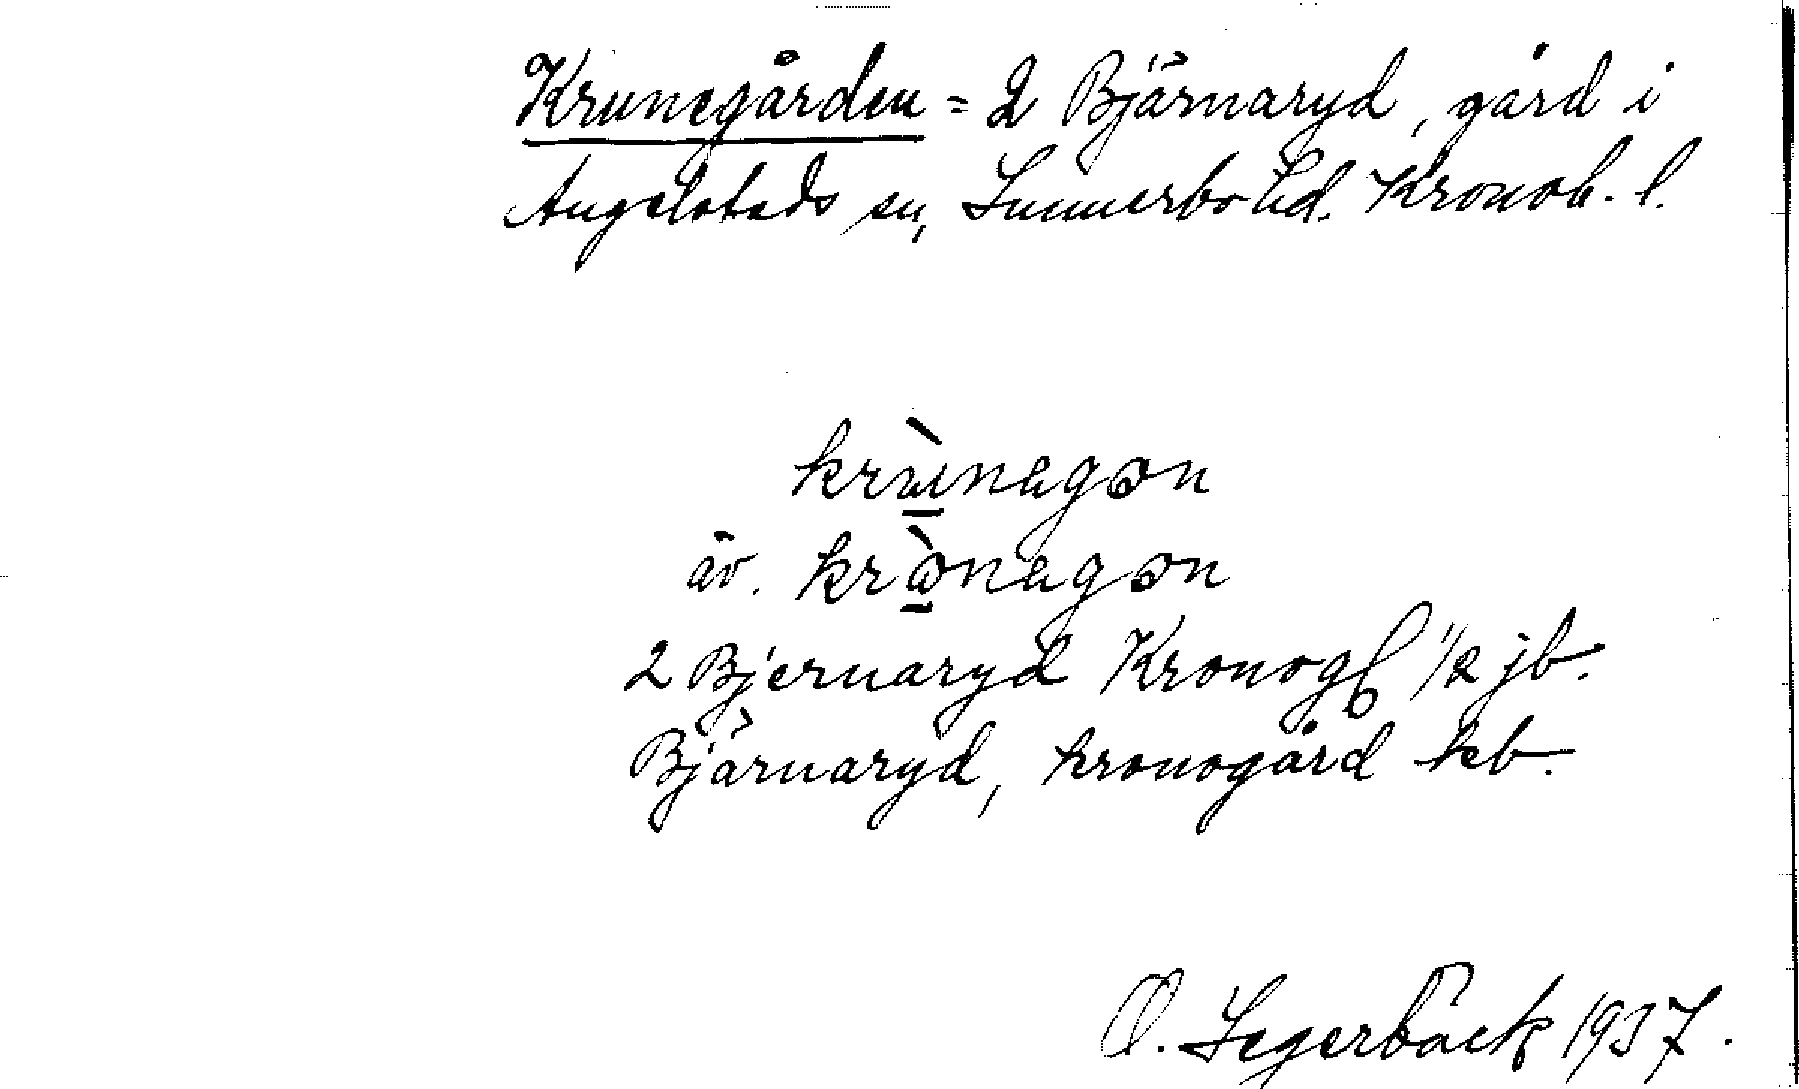 Krunegården = 2 Bjärnaryd, gård i
Angelstads sn, Sunnerbo hd. Kronob. l.
krùnagon
äv. krònagon
2 Bjernaryd Kronog 1/2 jb.
Bjärnaryd, kronogård kb.
O. Segerbäck 1937.